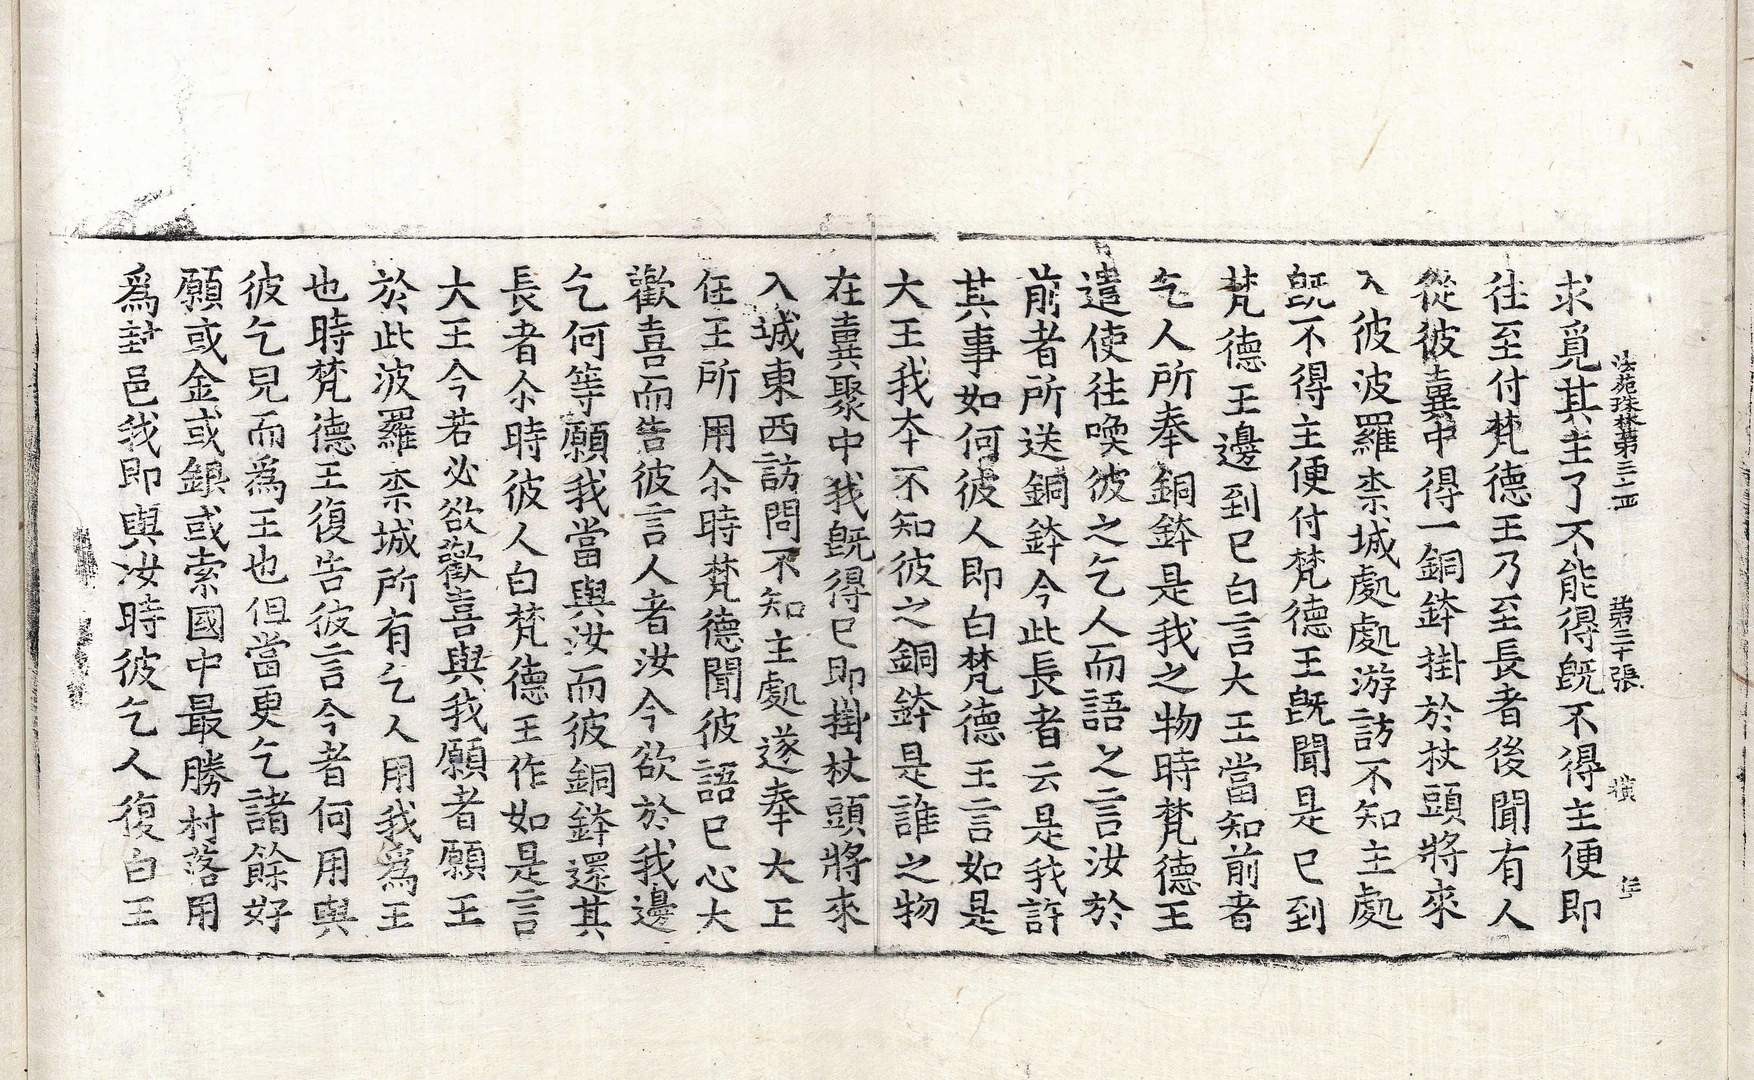 法苑珠林第三亞 第三十張 橫
求覓其主了不能得既不得主便即
往至付梵德王乃至長者後聞有人
從彼糞中得一銅鉢掛於杖頭將來
入彼波羅柰城處處游訪不知主處
既不得主便付梵德王既聞是已到
梵德王邊到已白言大王當知前者
乞人所奉銅鉢是我之物時梵德王
遣使往喚彼之乞人而語之言汝於
前者所送銅鉢今此長者云是我許
其事如何彼人即白梵德王言如是
大王我本不知彼之銅鉢是誰之物
在糞聚中我既得已即掛杖頭將來
入城東西訪問不知主處遂奉大王
任王所用尒時梵德聞彼語已心大
歡喜而告彼言人者汝今欲於我邊
乞何等願我當與汝而彼銅鉢還其
長者尒時彼人白梵德王作如是言
大王今若必欲歡喜與我願者願王
於此波羅柰城所有乞人用我爲王
也時梵德王復告彼言今者何用與
彼乞兒而爲王也但當更乞諸餘好
願或金或銀或索國中最勝村落用
爲封邑我即與汝時彼乞人復白王